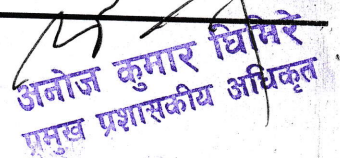 अनोज कुमार घिमिरे
प्रमुख प्रशासकीय अधिकृत